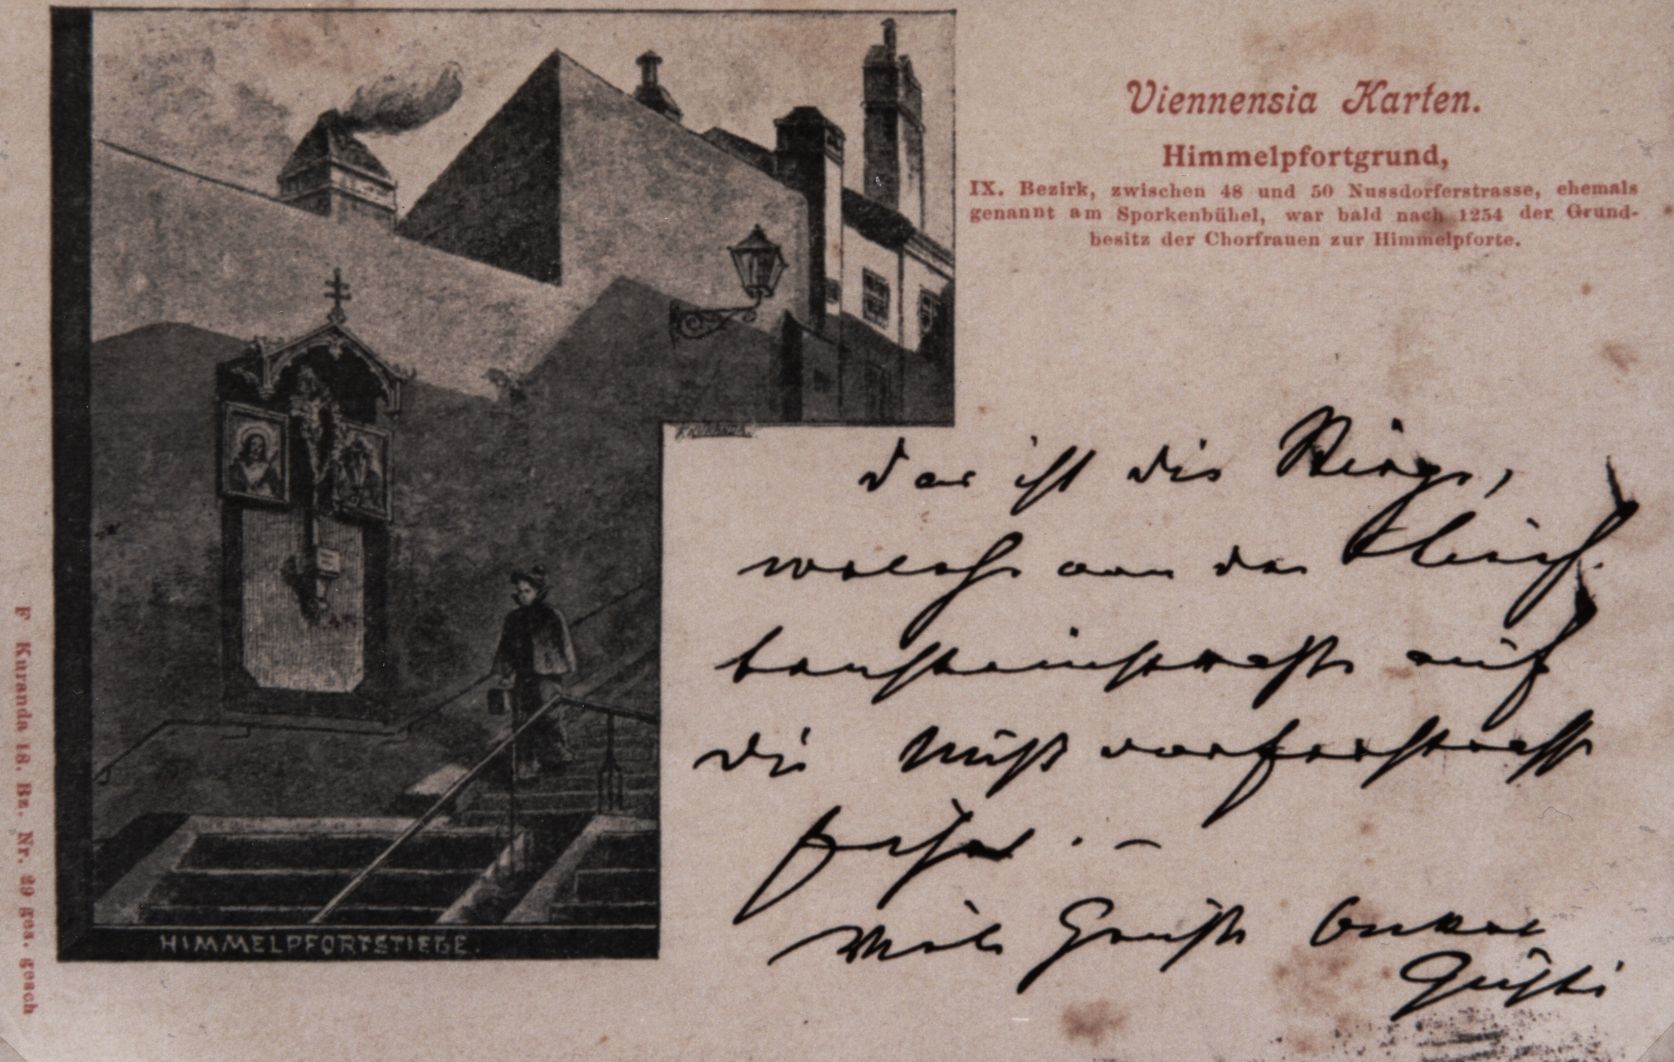 Viennensia Karten.
Himmelpfortgrund,
IX. Bezirk, zwischen 48 und 50 Nussdorferstrasse, ehemals
genannt am Sporkenbühel, war bald nach 1254 der Grund-
besitz der Chorfrauen zur Himmelpforte.
das ist die Stiege,
welche von der
auf
die Nußdorferstraße
führt. –
Viele Grüße Onkel
Gusti
HIMMELPFORTSTIEGE.
F. Kuranda 18. Bz. Nr. 29 ges. gesch